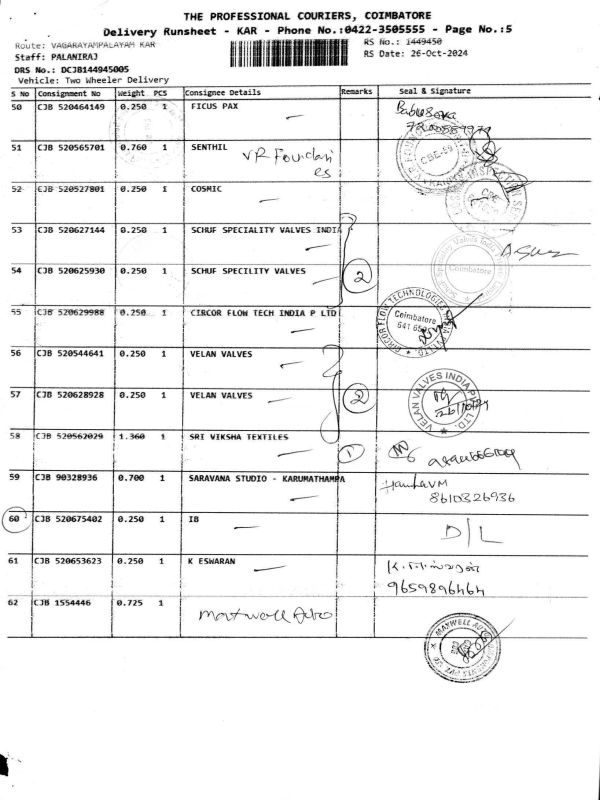 THE PROFESSIONAL COURIERS, COIMBATORE
Delivery Runsheet - KAR - Phone No.:0422-3505555 - Page No.:5
Route: VAGARAYAMPALAYAM KAR
RS No.: 1449450
Staff: PALANIRAJ
RS Date: 26-Oct-2024
DRS No.: DCJB144945005
Vehicle: Two Wheeler Delivery
S No Consignment No Weight PCS Consignee Details Remarks Seal & Signature
50 CJB 520464149 0.250 1 FICUS PAX
51 CJB 520565701 0.760 1 SENTHIL
VR Foundari
es
CBE-59
52 CJB 520527801 0.250 1 COSMIC
CBE
53 CJB 520627144 0.250 1 SCHUF SPECIALITY VALVES INDIA
54 CJB 520625930 0.250 1 SCHUF SPECILITY VALVES 2
Coimbatore
55 CJB 520629988 0.250 1 CIRCOR FLOW TECH INDIA P LTD
CIRCOR FLOW TECHNOLOGIES
Coimbatore
56 CJB 520544641 0.250 1 VELAN VALVES
57 CJB 520628928 0.250 1 VELAN VALVES 2
VELAN VALVES INDIA PVT. LTD.
58 CJB 520562029 1.360 1 SRI VIKSHA TEXTILES 1
59 CJB 90328936 0.700 1 SARAVANA STUDIO - KARUMATHAMPA
8610326936
60 CJB 520675402 0.250 1 IB D/L
61 CJB 520653623 0.250 1 K ESWARAN
9659896464
62 CJB 1554446 0.725 1 Maxwell Auto
MAXWELL AUTO